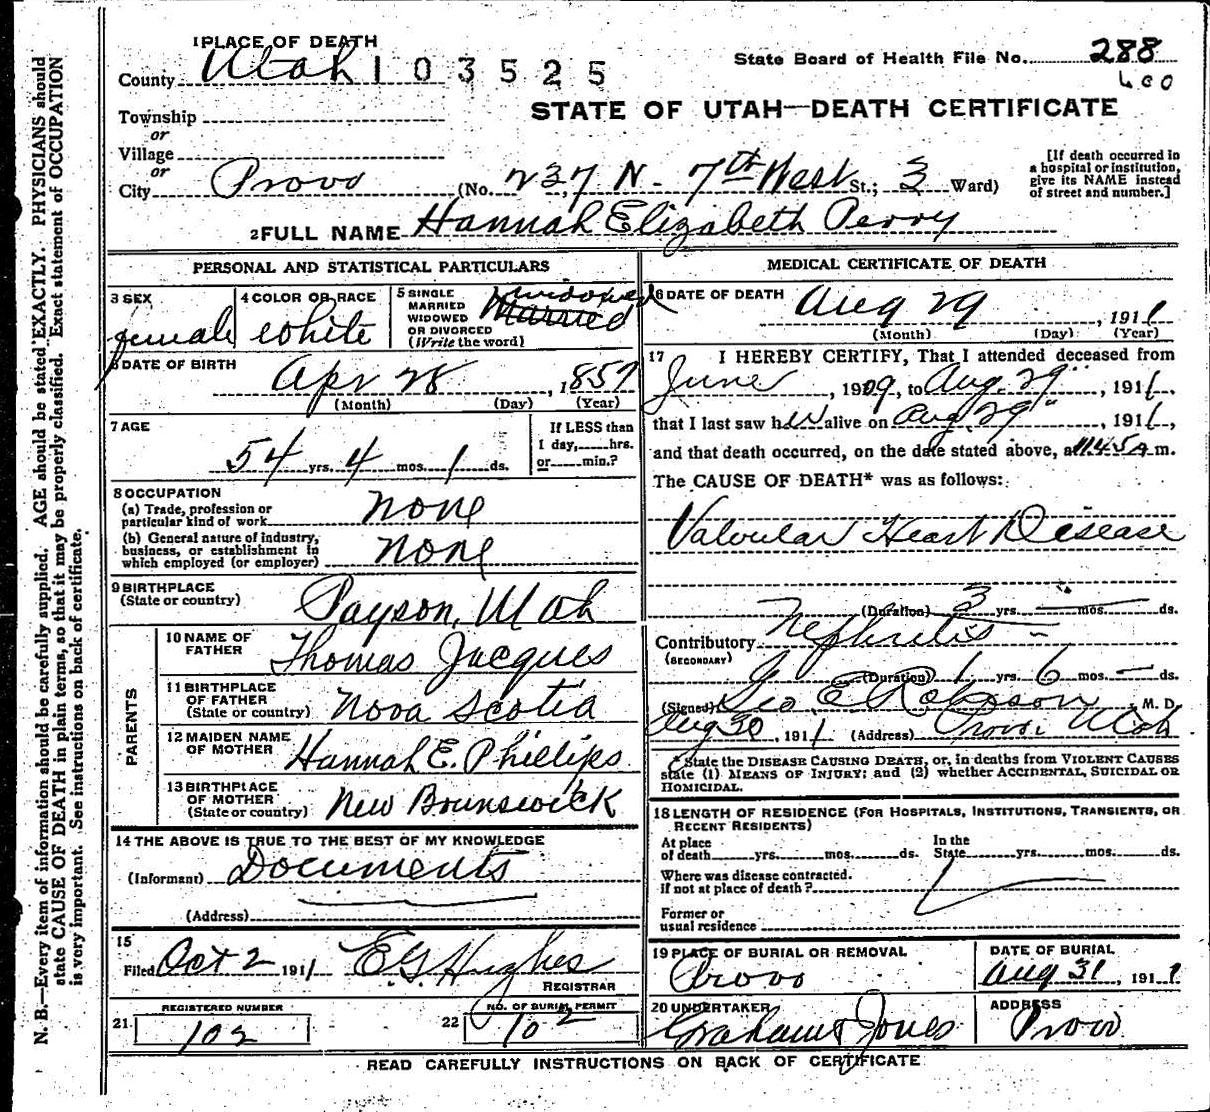 1 PLACE OF DEATH
County Utah 103525
State Board of Health File No. 288
600
STATE OF UTAH—DEATH CERTIFICATE
Township
or
Village
or
City Provo (No. 237 N. 7th West St.; 3 Ward)
[If death occurred in a hospital or institution, give its NAME instead of street and number.]
2 FULL NAME Hannah Elizabeth Perry
PERSONAL AND STATISTICAL PARTICULARS
3 SEX
female
4 COLOR OR RACE
White
5 SINGLE
MARRIED
WIDOWED
OR DIVORCED
(Write the word)
widowed
Married
6 DATE OF BIRTH
Apr 28, 1857
(Month) (Day) (Year)
7 AGE
54 yrs. 4 mos. 1 ds.
If LESS than
1 day,......hrs.
or......min.?
8 OCCUPATION
(a) Trade, profession or
particular kind of work none
(b) General nature of industry,
business, or establishment in
which employed (or employer) none
9 BIRTHPLACE
(State or country) Payson, Utah
PARENTS
10 NAME OF
FATHER Thomas Jacques
11 BIRTHPLACE
OF FATHER
(State or country) Nova Scotia
12 MAIDEN NAME
OF MOTHER Hannah E. Phillips
13 BIRTHPLACE
OF MOTHER
(State or country) New Brunswick
14 THE ABOVE IS TRUE TO THE BEST OF MY KNOWLEDGE
(Informant) Documents
(Address)
15
Filed Oct 2 1911 E.G. Hughes
REGISTRAR
REGISTERED NUMBER
21 102
NO. OF BURIAL PERMIT
22 102
MEDICAL CERTIFICATE OF DEATH
16 DATE OF DEATH Aug 29, 1911
(Month) (Day) (Year)
17 I HEREBY CERTIFY, That I attended deceased from
June, 1909, to Aug. 29", 1911,
that I last saw her alive on Aug. 29", 1911,
and that death occurred, on the date stated above, at 11.45 A m.
The CAUSE OF DEATH* was as follows:
Valvular Heart Disease
(Duration) 3 yrs. — mos. ds.
Contributory Nephritis
(SECONDARY)
(Duration) 1 yrs. 6 mos. — ds.
(Signed) Geo E Robison, M. D.
Aug 30, 1911 (Address) Provo, Utah
* State the DISEASE CAUSING DEATH, or, in deaths from VIOLENT CAUSES
state (1) MEANS OF INJURY; and (2) whether ACCIDENTAL, SUICIDAL OR
HOMICIDAL.
18 LENGTH OF RESIDENCE (FOR HOSPITALS, INSTITUTIONS, TRANSIENTS, OR
RECENT RESIDENTS)
At place
of death......yrs......mos......ds.
In the
State......yrs......mos......ds.
Where was disease contracted.
if not at place of death?
Former or
usual residence
19 PLACE OF BURIAL OR REMOVAL
Provo
DATE OF BURIAL
Aug 31, 1911
20 UNDERTAKER
Graham & Jones
ADDRESS
Provo
READ CAREFULLY INSTRUCTIONS ON BACK OF CERTIFICATE
N. B.—Every item of information should be carefully supplied. AGE should be stated EXACTLY. PHYSICIANS should
state CAUSE OF DEATH in plain terms, so that it may be properly classified. Exact statement of OCCUPATION
is very important. See instructions on back of certificate.